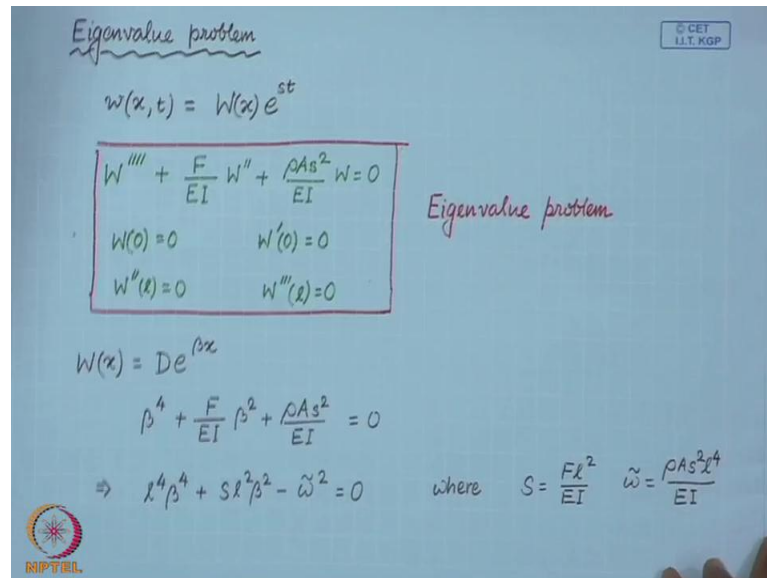 Eigenvalue problem
© CET
I.I.T. KGP
w(x,t) = W(x) e^{st}
W'''' + F/EI W'' + ρAs²/EI W = 0
W(0) = 0 W'(0) = 0
Eigenvalue problem
W''(l) = 0 W'''(l) = 0
W(x) = D e^{βx}
β⁴ + F/EI β² + ρAs²/EI = 0
⇒ l⁴β⁴ + Sl²β² − ω̃² = 0 where S = Fl²/EI ω̃ = ρAs²l⁴/EI
NPTEL